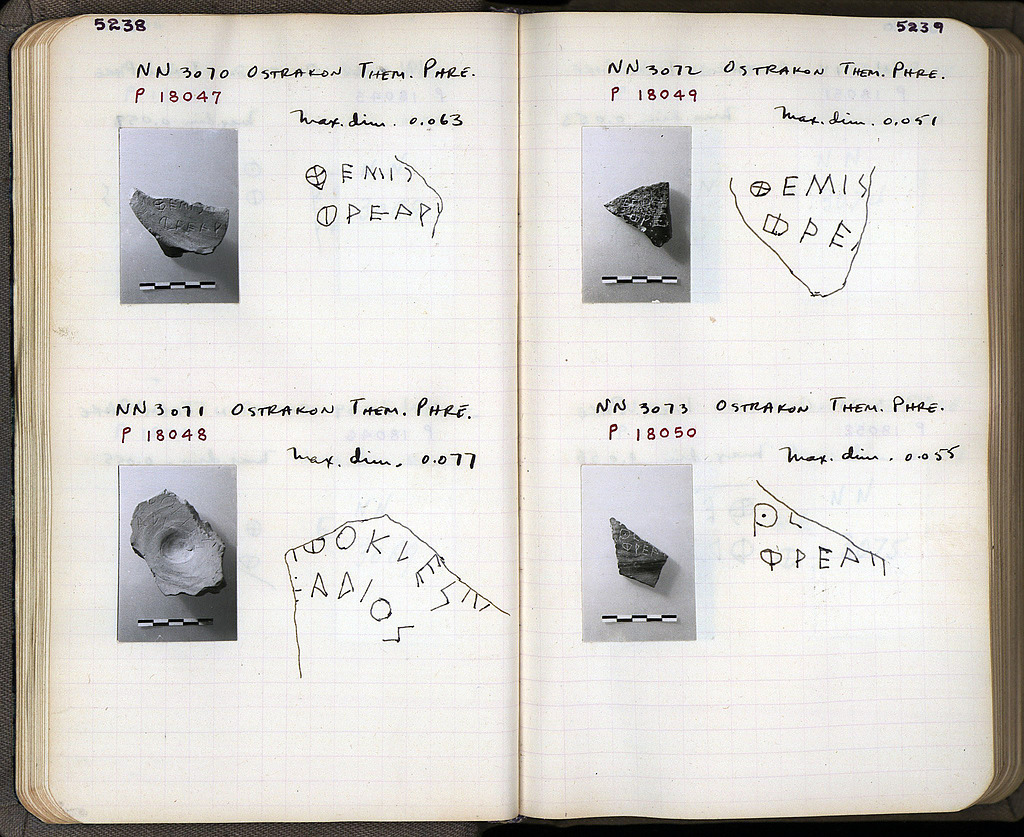 5238
NN 3070 OSTRAKON THEM. PHRE.
P 18047
Max. dim. 0.063
ΘEMIS
ΦPEAPP
NN 3071 OSTRAKON THEM. PHRE.
P 18048
Max. dim. 0.077
ΘOKLES
ADIOS
5239
NN 3072 OSTRAKON THEM. PHRE.
P 18049
Max. dim. 0.051
ΘEMIS
ΦPE
NN 3073 OSTRAKON THEM. PHRE.
P 18050
Max. dim. 0.055
ΦPEAP